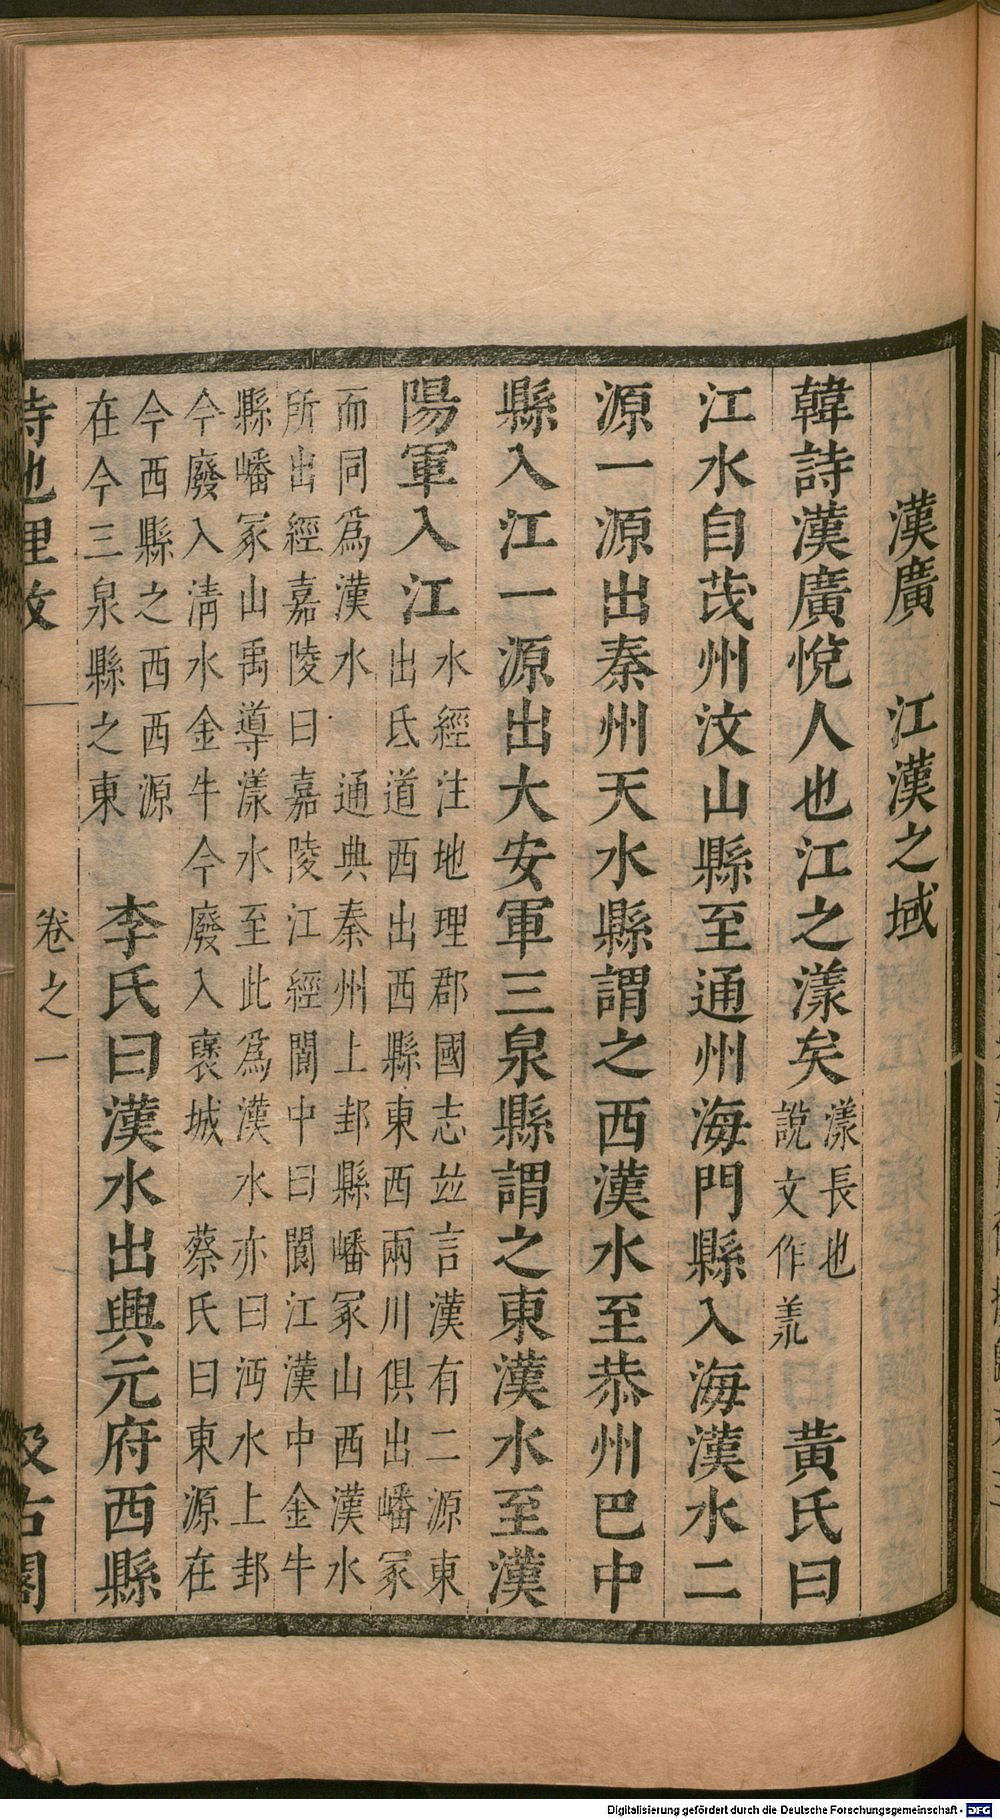 漢廣　江漢之域
韓詩漢廣悅人也江之漾矣漾長也說文作羕黃氏曰
江水自茂州汶山縣至通州海門縣入海漢水二
源一源出秦州天水縣謂之西漢水至恭州巴中
縣入江一源出大安軍三泉縣謂之東漢水至漢
陽軍入江水經注地理郡國志竝言漢有二源東
出氐道西出西縣東西兩川俱出嶓冢
而同為漢水　通典秦州上邽縣嶓冢山西漢水
所出經嘉陵曰嘉陵江經閬中曰閬江漢中金牛
縣嶓冢山禹導漾水至此為漢水亦曰沔水上邽
今廢入清水金牛今廢入襃城　蔡氏曰東源在
今西縣之西西源
在今三泉縣之東
李氏曰漢水出興元府西縣
詩地理攷　卷之一　汲古閣
Digitalisierung gefördert durch die Deutsche Forschungsgemeinschaft - DFG